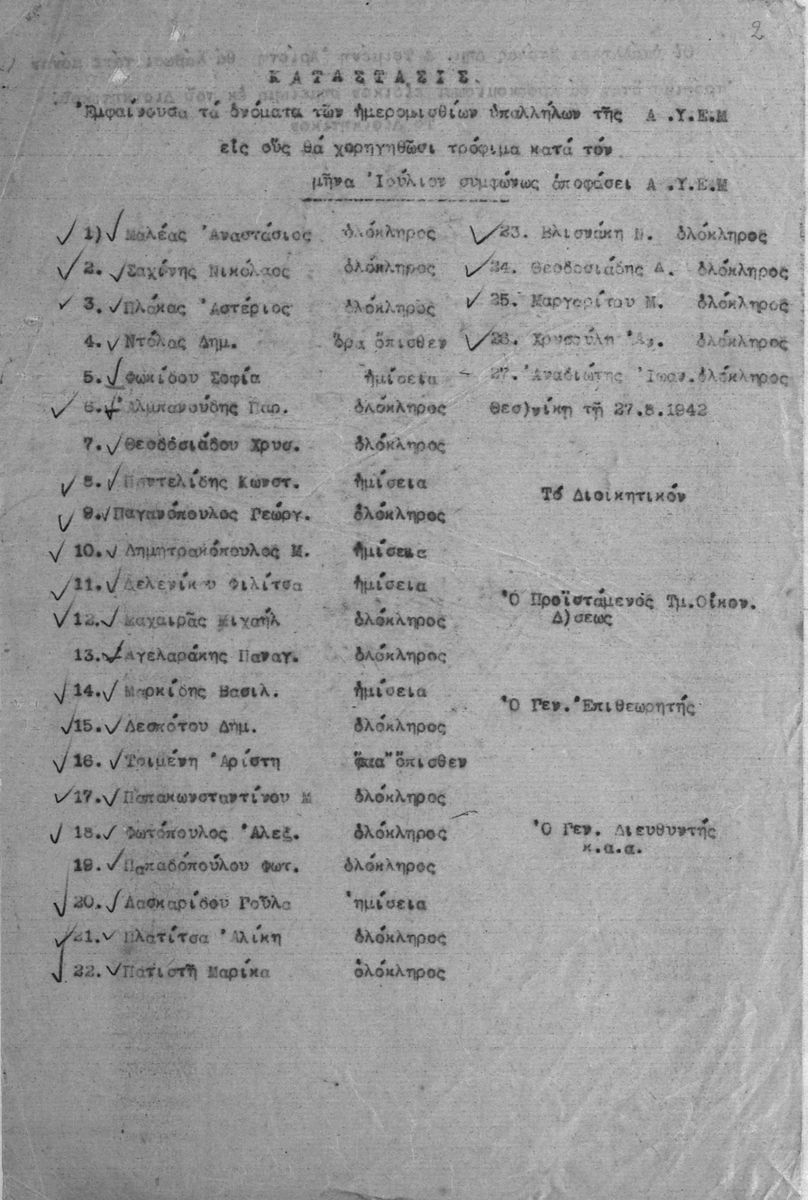 2
ΚΑΤΑΣΤΑΣΙΣ
Ἐμφαίνουσα τά ὀνόματα τῶν ἡμερομισθίων ὑπαλλήλων τῆς Α .Υ.Ε.Μ
εἰς οὕς θά χορηγηθῶσι τρόφιμα κατά τόν
μῆνα Ἰούλιον συμφώνως ἀποφάσει Α .Υ.Ε.Μ
1) Μαλέας Ἀναστάσιος ὁλόκληρος
2. Σαχίνης Νικόλαος ὁλόκληρος
3. Πλάκας Ἀστέριος ὁλόκληρος
4. Ντόλας Δημ. ὅρα ὄπισθεν
5. Φωκίδου Σοφία ἡμίσεια
6. Ἀλμπανούδης Παρ. ὁλόκληρος
7. Θεοδοσιάδου Χρυσ. ὁλόκληρος
8. Παντελίδης Κωνστ. ἡμίσεια
9. Παγανόπουλος Γεώργ. ὁλόκληρος
10. Δημητρακόπουλος Μ. ἡμίσεια
11. Δελενίκου Φιλίτσα ἡμίσεια
12. Μαχαιρᾶς Μιχαήλ ὁλόκληρος
13. Ἀγελαράκης Παναγ. ὁλόκληρος
14. Μαρκίδης Βασιλ. ἡμίσεια
15. Δεσκότου Δημ. ὁλόκληρος
16. Τσιμένη Ἀρίστη ὄπισθεν
17. Παπακωνσταντίνου Μ ὁλόκληρος
18. Φωτόπουλος Ἀλεξ. ὁλόκληρος
19. Παπαδόπουλου Φωτ. ὁλόκληρος
20. Λασκαρίδου Ρούλα ἡμίσεια
21. Πλατίτσα Ἀλίκη ὁλόκληρος
22. Πατιστῆ Μαρίκα ὁλόκληρος
23. Βλισνάκη Ν. ὁλόκληρος
24. Θεοδοσιάδης Δ. ὁλόκληρος
25. Μαργαρίτου Μ. ὁλόκληρος
26. Χρυσούλη Ἀν. ὁλόκληρος
27. Ἀναδιώτης Ἰωαν. ὁλόκληρος
Θεσ)νίκῃ τῇ 27.8.1942
Τό Διοικητικόν
Ὁ Προϊστάμενός Τμ.Οἰκον.
Δ)σεως
Ὁ Γεν. Ἐπιθεωρητής
Ὁ Γεν. Διευθυντής
κ.α.α.